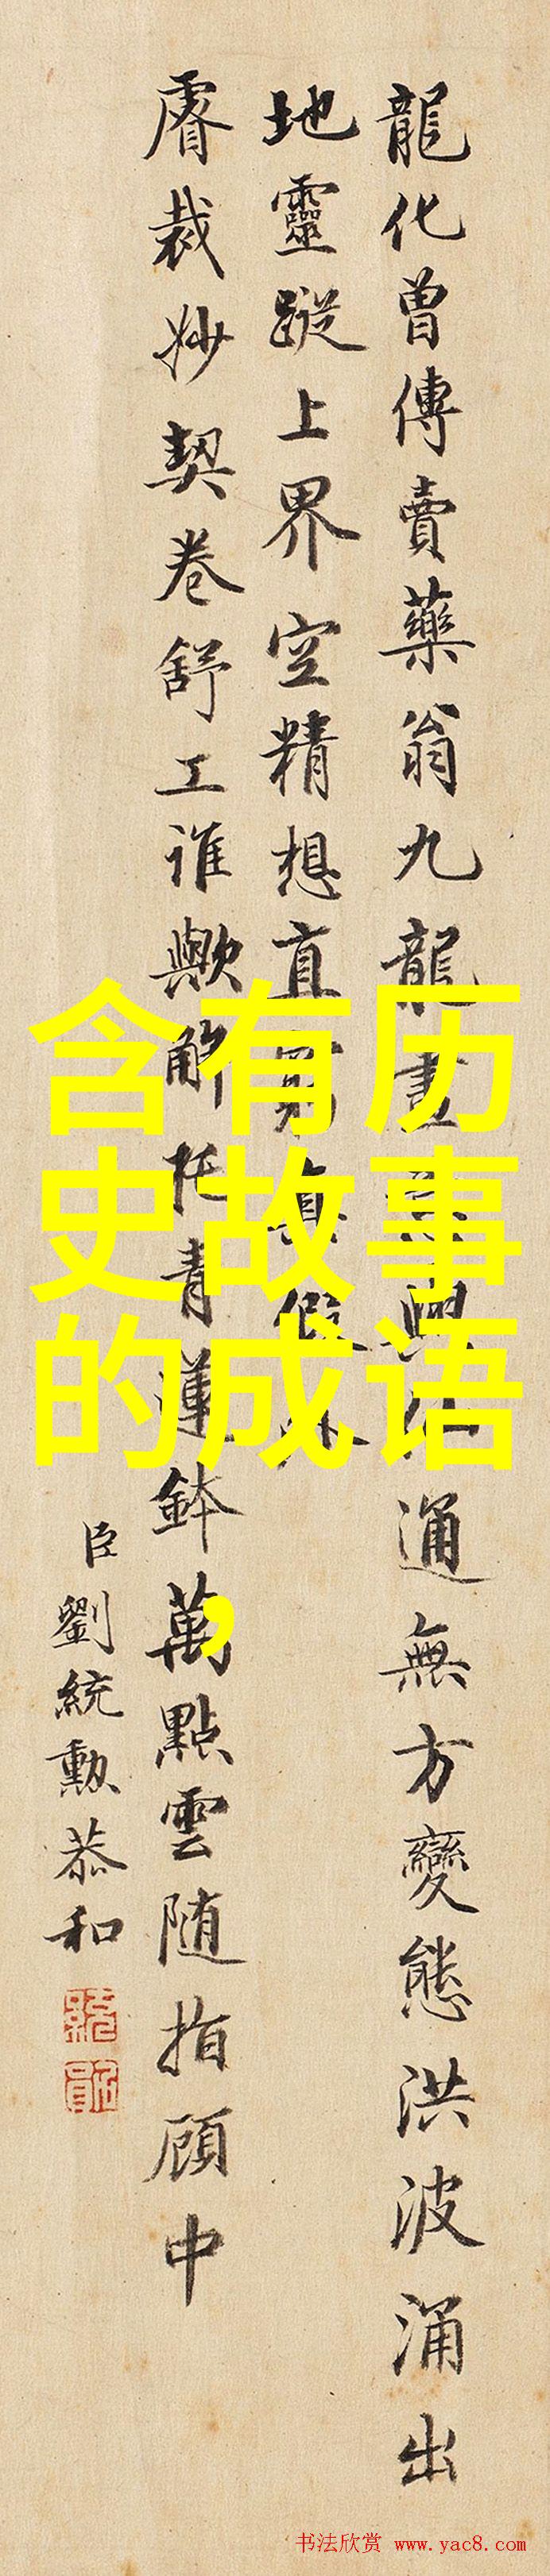 龍化曾傳賣藥翁九龍畫興化通無方變態洪波涌出
地靈蹤上界空精想直真假外
睿裁妙契卷舒工誰歟解托青蓮鉢萬點雲随指顧中
臣劉統勳恭和
含有历
史故事
的成语
，
书法欣赏 www.yac8.com